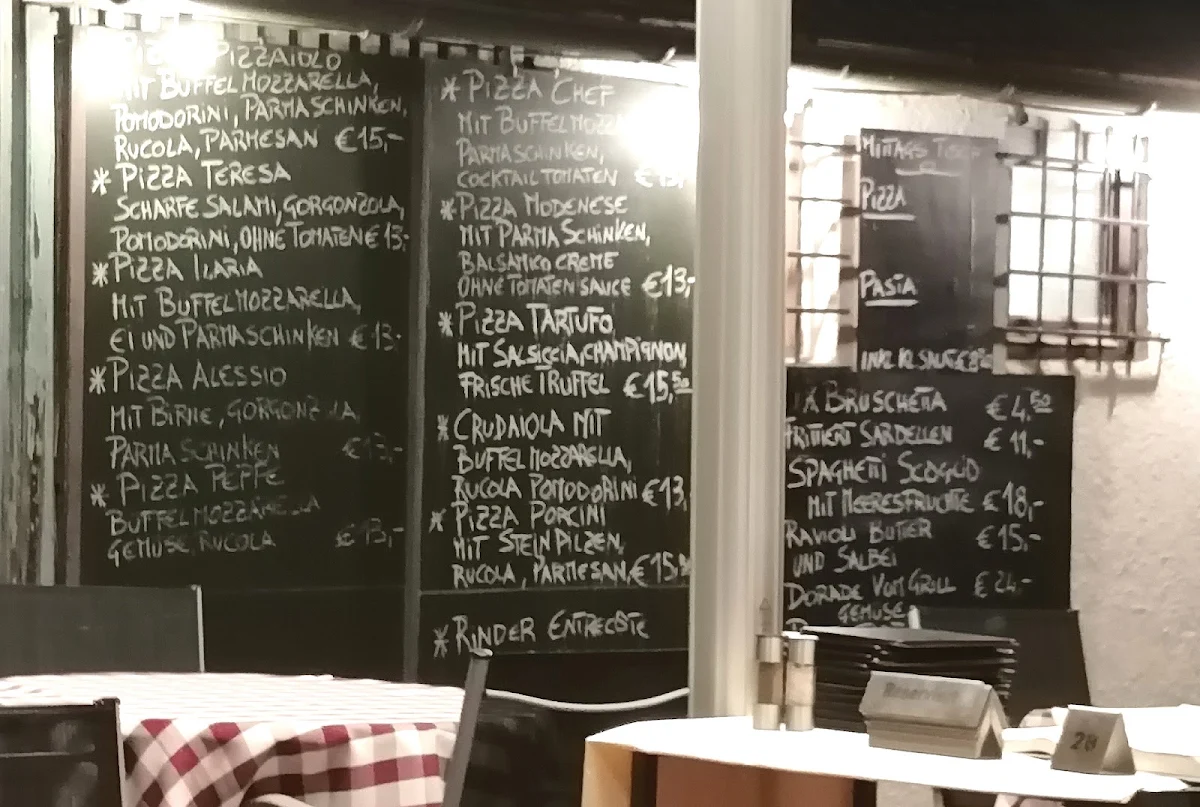 PIZZAIOLO
MIT BUFFELMOZZARELLA,
POMODORINI, PARMASCHINKEN,
RUCOLA, PARMESAN €15,-
* PIZZA TERESA
SCHARFE SALAMI, GORGONZOLA,
POMODORINI, OHNE TOMATEN €13,-
* PIZZA ILARIA
MIT BUFFELMOZZARELLA,
EI UND PARMASCHINKEN €13-
* PIZZA ALESSIO
MIT BIRNE, GORGONZOLA,
PARMA SCHINKEN €13,-
* PIZZA PEPPE
BUFFELMOZZARELLA
GEMUSE, RUCOLA €13,-
* PIZZA CHEF
MIT BUFFELMOZZ
PARMASCHINKEN,
COCKTAILTOMATEN
* PIZZA MODENESE
MIT PARMA SCHINKEN,
BALSAMICO CREME
OHNE TOMATEN SAUCE €13,-
* PIZZA TARTUFO
MIT SALSICCIA, CHAMPIGNON,
FRISCHE TRUFFEL €15,50
* CRUDAIOLA MIT
BUFFELMOZZARELLA,
RUCOLA POMODORINI €13,
* PIZZA PORCINI
MIT STEINPILZEN,
RUCOLA, PARMESAN, €15,
* RINDER ENTRECOTE
MITTAGS TISCH
PIZZA
PASTA
INKL KL SALAT
BRUSCHETTA €4,50
FRITTIERT SARDELLEN €11,-
SPAGHETTI SCOGLIO
MIT MEERESFRUCHTE €18,-
RAVIOLI BUTTER €15,-
UND SALBEI
DORADE VOM GRILL €24-
GEMUSE
Reserviert
20